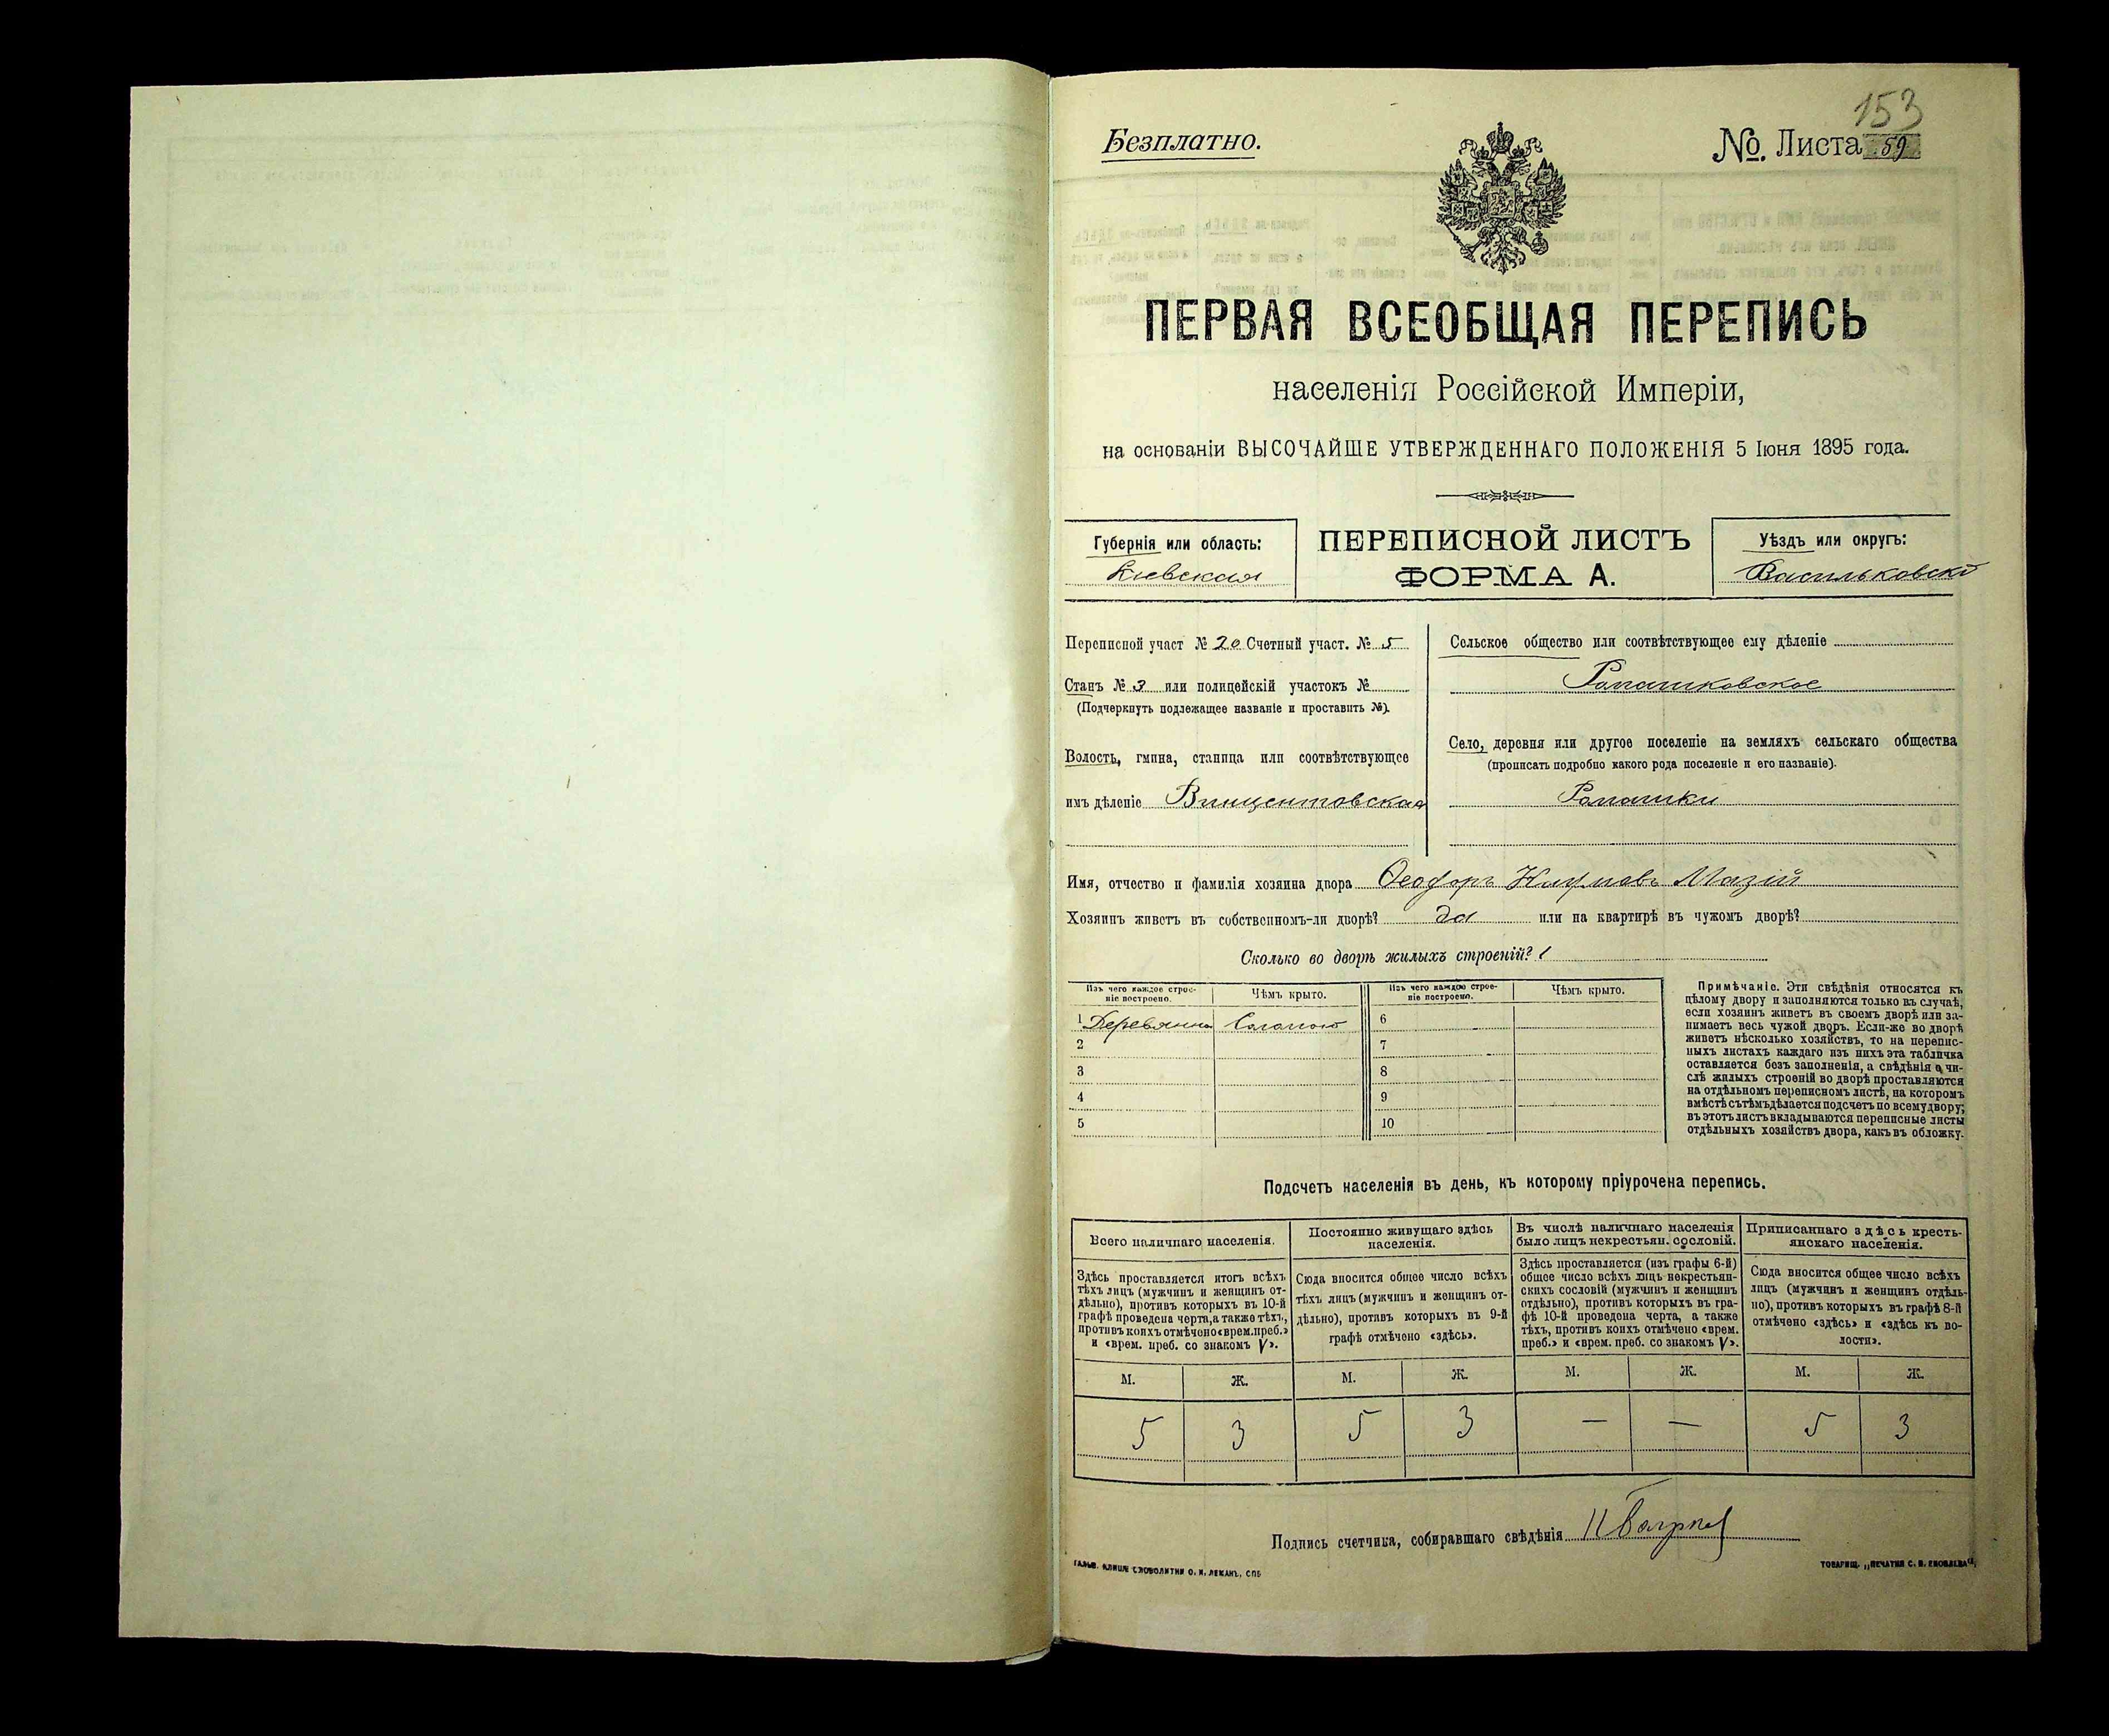 153
Безплатно.
№. Листа 59
ПЕРВАЯ ВСЕОБЩАЯ ПЕРЕПИСЬ
населенія Россійской Имперіи,
на основаніи ВЫСОЧАЙШЕ УТВЕРЖДЕННАГО ПОЛОЖЕНІЯ 5 Іюня 1895 года.
Губернія или область:
Кіевская
ПЕРЕПИСНОЙ ЛИСТЪ
ФОРМА А.
Уѣздъ или округъ:
Васильковскій
Переписной участ № 20 Счетный участ. № 5
Станъ № 3 или полицейскій участокъ №
(Подчеркнуть подлежащее названіе и проставить №).
Волость, гмина, станица или соотвѣтствующее
имъ дѣленіе Винцентовская
Сельское общество или соотвѣтствующее ему дѣленіе
Ромашковское
Село, деревня или другое поселеніе на земляхъ сельскаго общества
(прописать подробно какого рода поселеніе и его названіе).
Ромашки
Имя, отчество и фамилія хозяина двора Ѳеодоръ Мазій
Хозяинъ живетъ въ собственномъ-ли дворѣ? да или на квартирѣ въ чужомъ дворѣ?
Сколько во дворѣ жилыхъ строеній? 1
Изъ чего каждое строе-
ніе построено.
Чѣмъ крыто.
Изъ чего каждое строе-
ніе построено.
Чѣмъ крыто.
1 Деревянно Соломою 6
2 7
3 8
4 9
5 10
Примѣчаніе. Эти свѣдѣнія относятся къ
цѣлому двору и заполняются только въ случаѣ,
если хозяинъ живетъ въ своемъ дворѣ или за-
нимаетъ весь чужой дворъ. Если-же во дворѣ
живетъ нѣсколько хозяйствъ, то на перепис-
ныхъ листахъ каждаго изъ нихъ эта табличка
оставляется безъ заполненія, а свѣдѣнія о чи-
слѣ жилыхъ строеній во дворѣ проставляются
на отдѣльномъ переписномъ листѣ, на которомъ
вмѣстѣ съ тѣмъ дѣлается подсчетъ по всему двору;
въ этотъ листъ вкладываются переписные листы
отдѣльныхъ хозяйствъ двора, какъ въ обложку.
Подсчетъ населенія въ день, къ которому пріурочена перепись.
Всего наличнаго населенія.
Здѣсь проставляется итогъ всѣхъ
тѣхъ лицъ (мужчинъ и женщинъ от-
дѣльно), противъ которыхъ въ 10-й
графѣ проведена черта, а также тѣхъ,
противъ коихъ отмѣчено «врем. преб.»
и «врем. преб. со знакомъ V».
Постоянно живущаго здѣсь
населенія.
Сюда вносится общее число всѣхъ
тѣхъ лицъ (мужчинъ и женщинъ от-
дѣльно), противъ которыхъ въ 9-й
графѣ отмѣчено «здѣсь».
Въ числѣ наличнаго населенія
было лицъ некрестьян. сословій.
Здѣсь проставляется (изъ графы 6-й)
общее число всѣхъ лицъ некрестьян-
скихъ сословій (мужчинъ и женщинъ
отдѣльно), противъ которыхъ въ гра-
фѣ 10-й проведена черта, а также
тѣхъ, противъ коихъ отмѣчено «врем.
преб.» и «врем. преб. со знакомъ V».
Приписаннаго здѣсь кресть-
янскаго населенія.
Сюда вносится общее число всѣхъ
лицъ (мужчинъ и женщинъ отдѣль-
но), противъ которыхъ въ графѣ 8-й
отмѣчено «здѣсь» и «здѣсь къ во-
лости».
М. Ж. М. Ж. М. Ж. М. Ж.
5 3 5 3 — — 5 3
Подпись счетчика, собиравшаго свѣдѣнія
ГАЛЬВ. КЛИШЕ СЛОВОЛИТНИ О. И. ЛЕМАНЪ, СПБ
ТОВАРИЩ. „ПЕЧАТНЯ С. П. ЯКОВЛЕВА“,